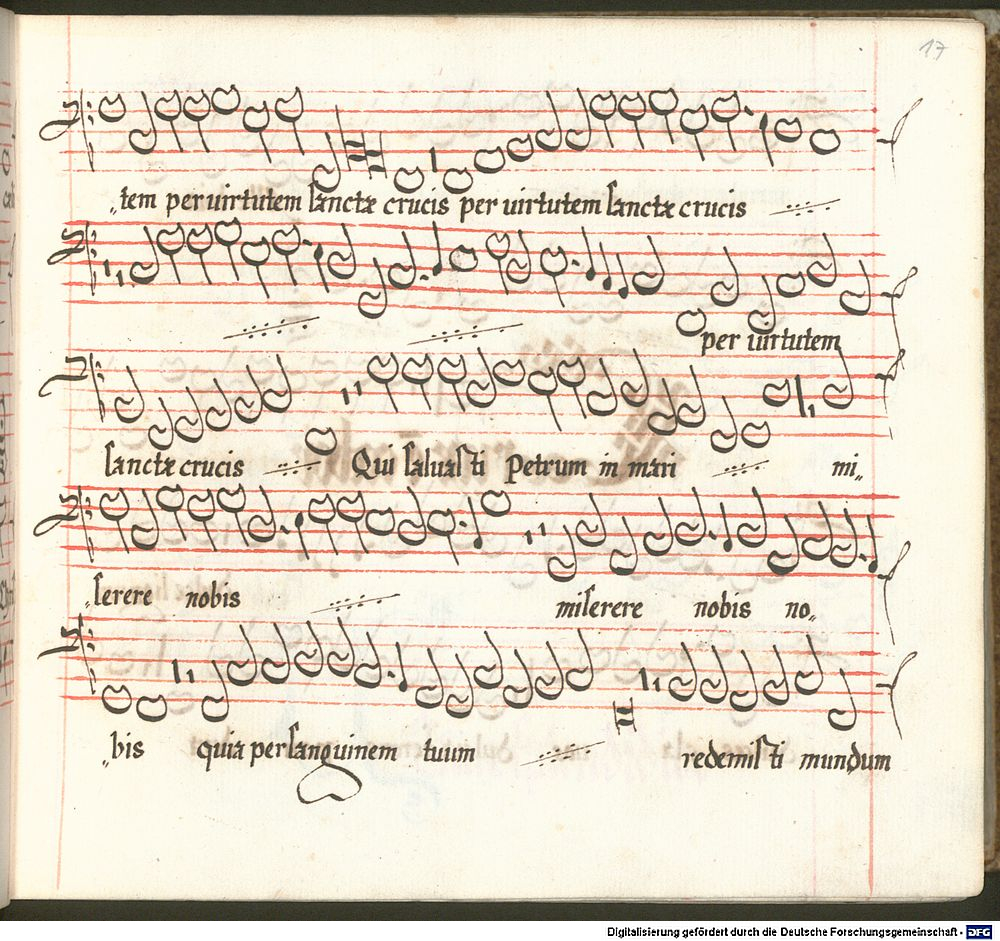 17
„tem per uirtutem sanctæ crucis per uirtutem sanctæ crucis
per uirtutem
sanctæ crucis Qui saluasti Petrum in mari mi„
„serere nobis miserere nobis no„
„bis quia per sanguinem tuum redemisti mundum
Digitalisierung gefördert durch die Deutsche Forschungsgemeinschaft - DFG